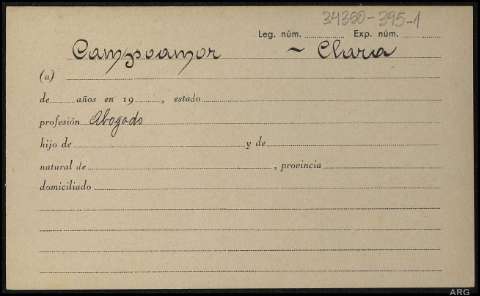 34360-395-1
Leg. núm. Exp. núm.
Campoamor ~ Clara
(a)
de años en 19 , estado
profesión Abogado
hijo de y de
natural de , provincia
domiciliado
ARG